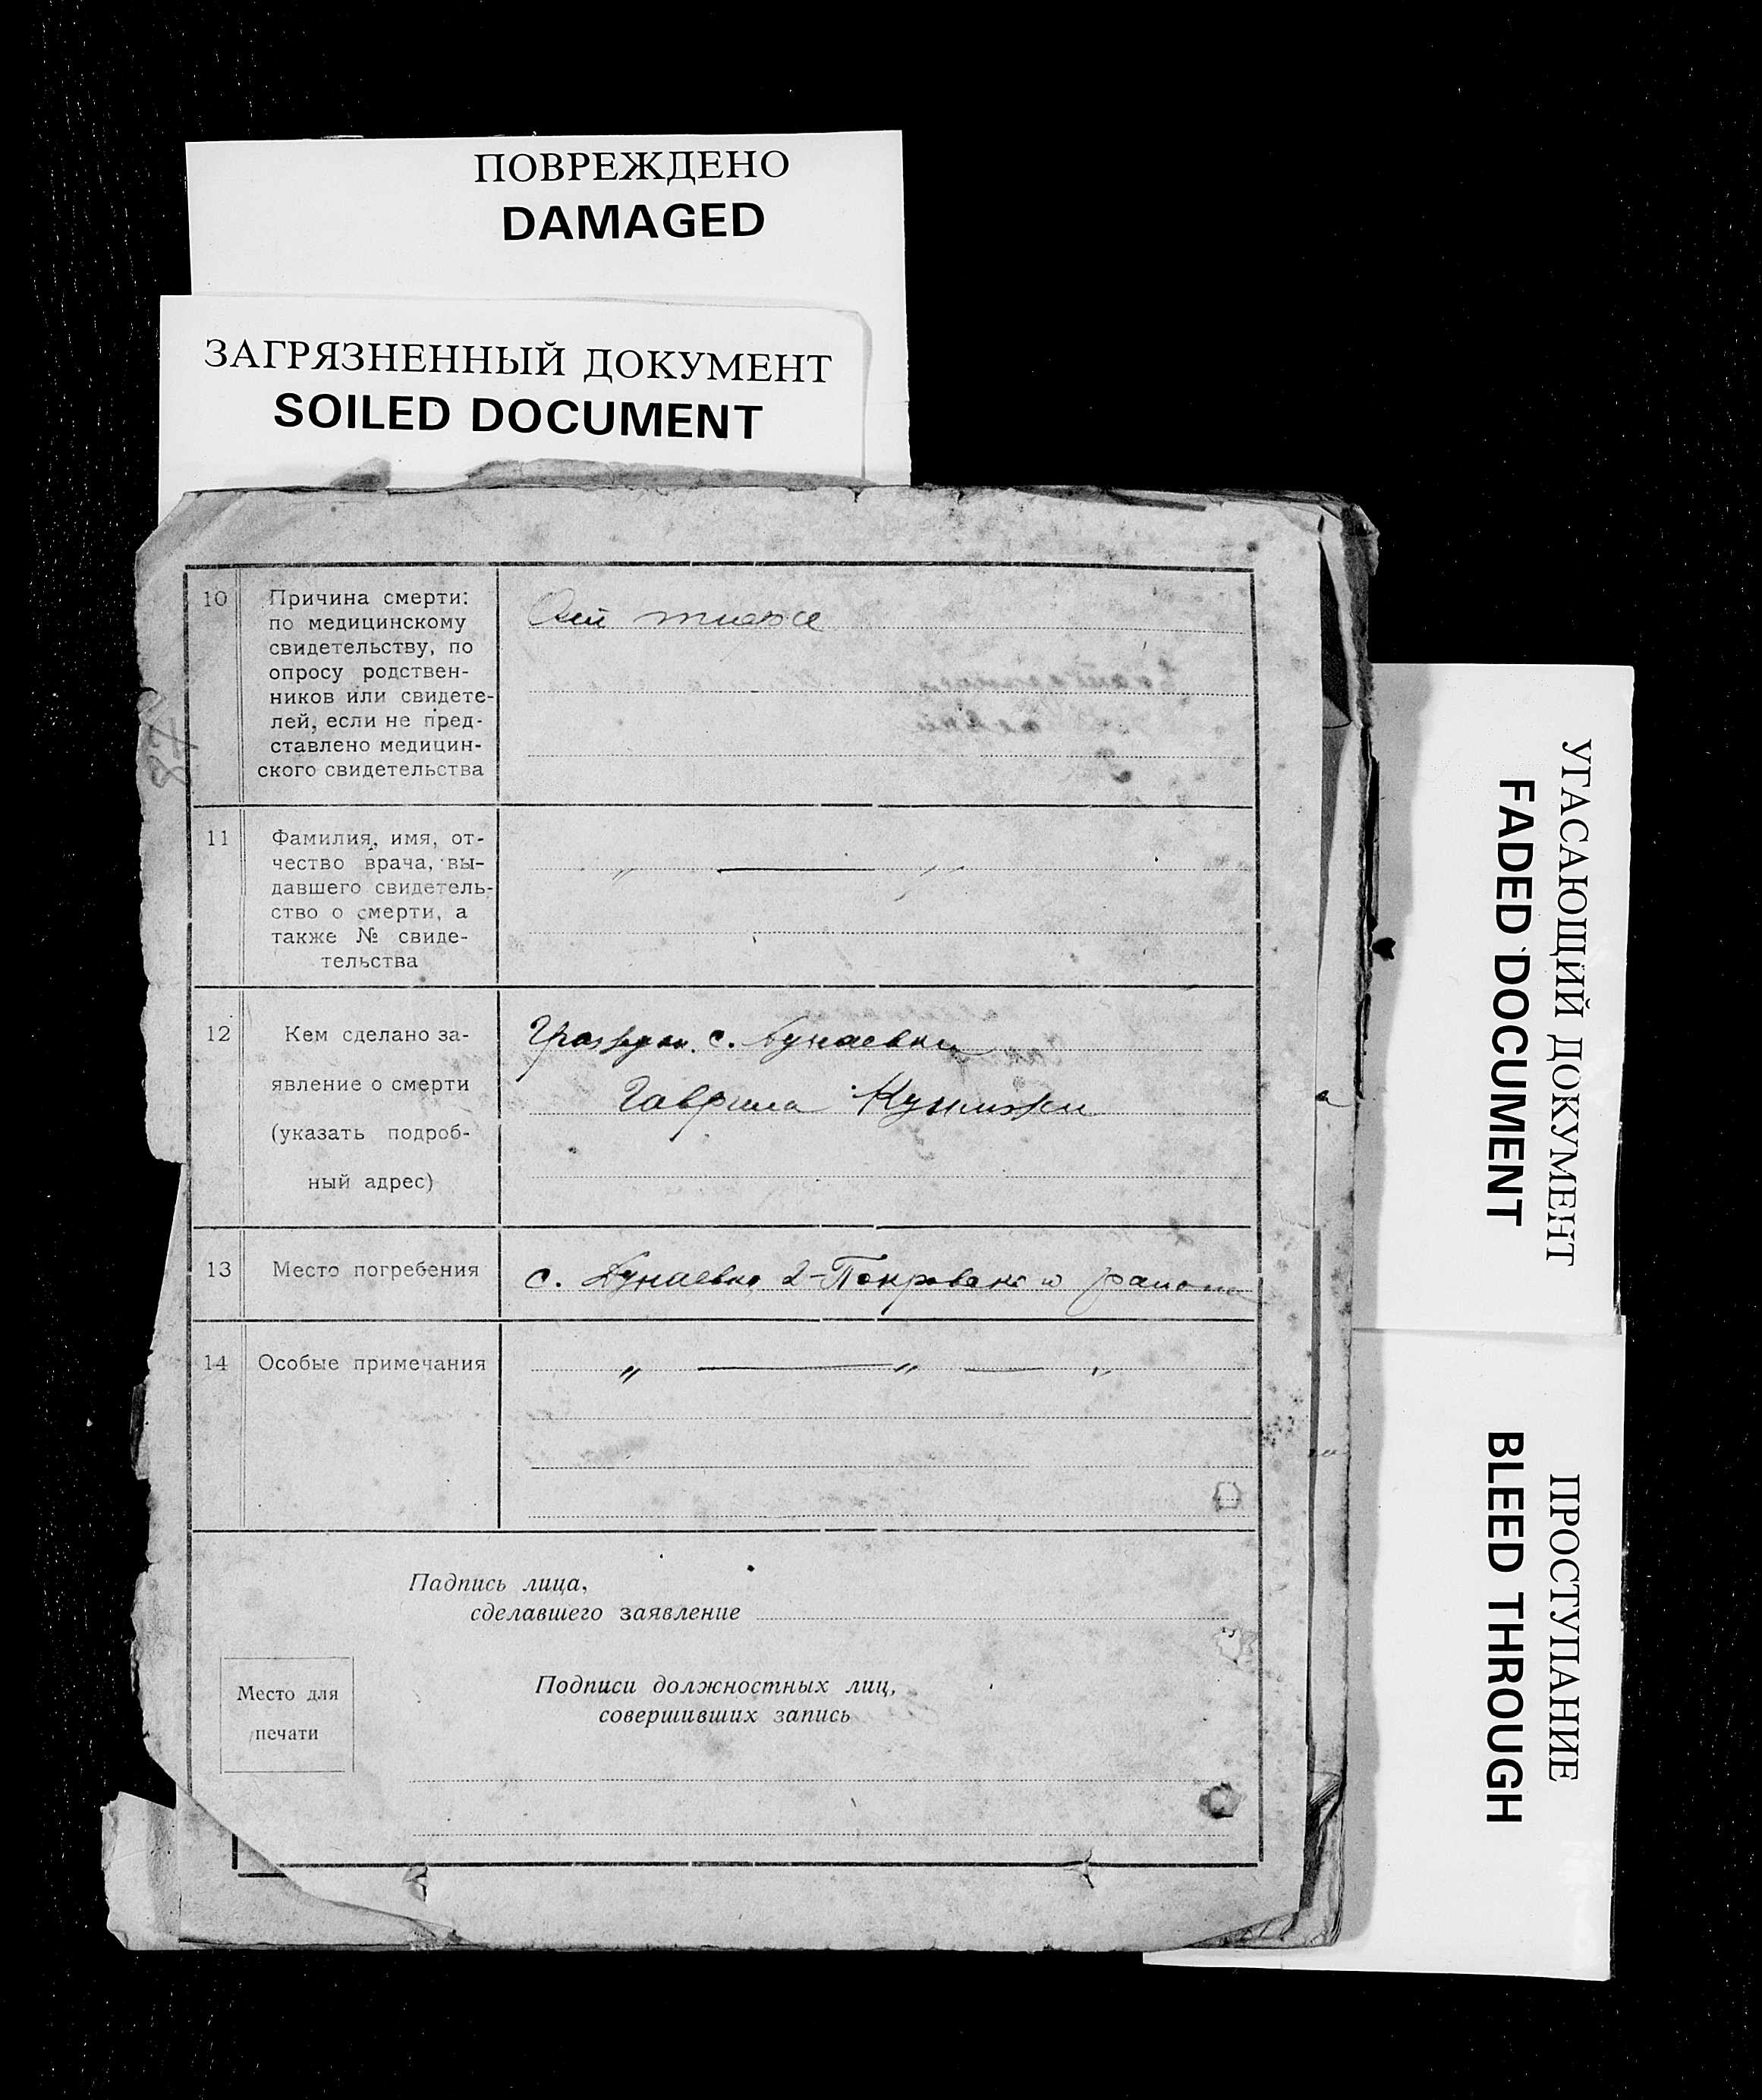 ПОВРЕЖДЕНО
DAMAGED
ЗАГРЯЗНЕННЫЙ ДОКУМЕНТ
SOILED DOCUMENT
10
Причина смерти:
по медицинскому
свидетельству, по
опросу родствен-
ников или свидете-
лей, если не пред-
ставлено медицин-
ского свидетельства
11
Фамилия, имя, от-
чество врача, вы-
давшего свидетель-
ство о смерти, а
также № свиде-
тельства
„ — „
12
Кем сделано за-
явление о смерти
(указать подроб-
ный адрес)
с. Дунаевки
Гаврила
13
Место погребения
с. Дунаевка, 2-Покровского района
14
Особые примечания
„ — „ — „
Падпись лица,
сделавшего заявление
Место для
печати
Подписи должностных лиц,
совершивших запись
УГАСАЮЩИЙ ДОКУМЕНТ
FADED DOCUMENT
ПРОСТУПАНИЕ
BLEED THROUGH